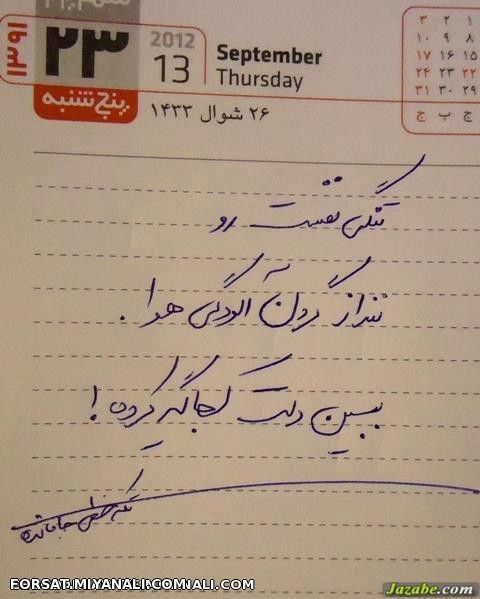 ۱۳۹۱
۲۳
پنج شنبه
2012
13
September
Thursday
۲۶ شوال ۱۴۳۳
۳ ۲ ۱
۱۰ ۹ ۸
۱۷ ۱۶ ۱۵
۲۴ ۲۳ ۲۲
۳۱ ۳۰ ۲۹
ج پ ج
تنگی نفست رو
ننداز گردن آلودگی هوا.
ببین دلت کجا گیر کرده!
EORSAT.MIYANALI.COM
ALI.COM
Jazabe.com